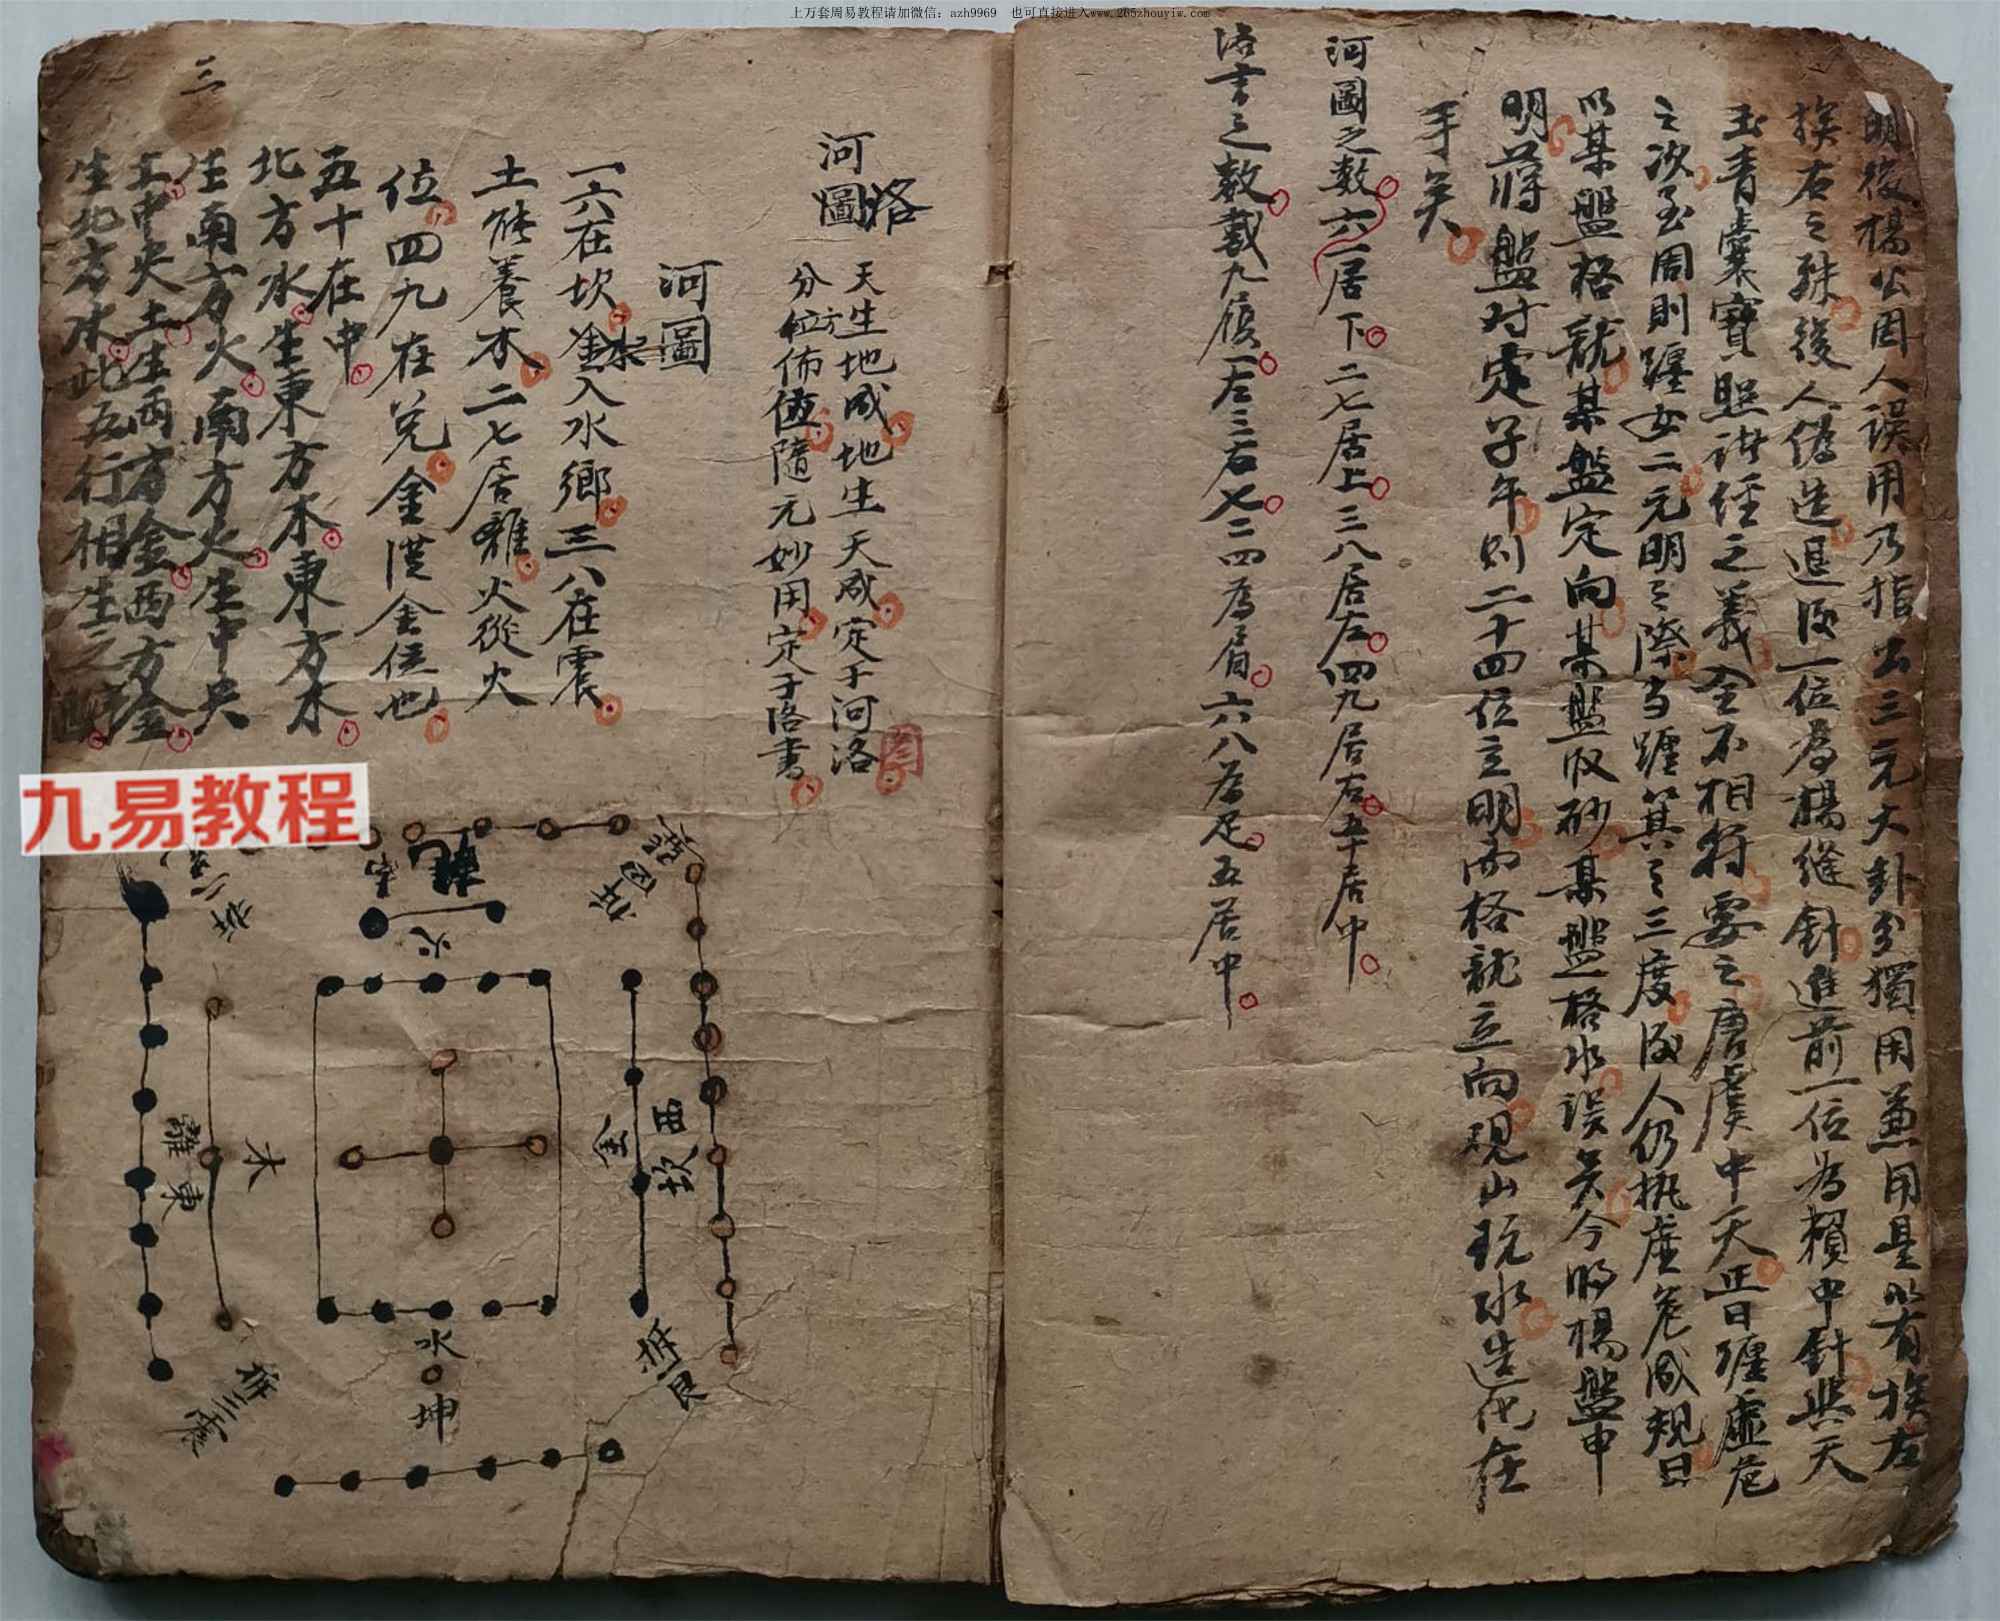 上万套周易教程请加微信: azh9969 也可直接进入www.265zhouyiw.com
明後楊公因人誤用乃指出三元大卦分獨用兼用是以有挨左
挨右之殊後人偽造退後一位為楊縫針進前一位為賴中針與天
玉青囊寶照諸經之義全不相符要之唐虞中天正日躔虛危
之次至周則躔女二元明之際当躔箕之三度後人仍執虛危成規曰
以某盤格龍某盤定向某盤收砂某盤格水誤矣今將楊盤申
明蔣盤对定子年则二十四位立明而格龍立向观山玩水造化在
手矣
河圖之数六一居下二七居上三八居左四九居右五十居中
洛書之数戴九履一左三右七二四為肩六八為足五居中
河圖洛
天生地成地生天成定于河洛
分方位佈位隨元妙用定于洛書
河圖
一六在坎水金入水鄉三八在震
土能養木二七居離火從火
位四九在兌金從金位也
五十在中
北方水生東方木東方木
生南方火南方火生中央
土中央土生西方金西方金
生北方水此五行相生之
三
九易教程
乾
南
火
木
離東
金
西坎
水
坤
震
艮